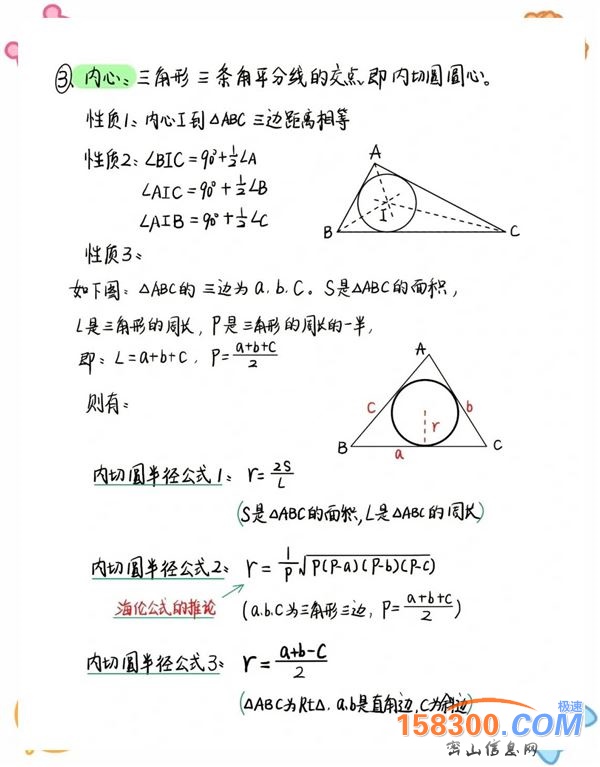 ③ 内心: 三角形三条角平分线的交点,即内切圆圆心。
性质1: 内心I到△ABC三边距离相等
性质2: ∠BIC=90°+½∠A
∠AIC=90°+½∠B
∠AIB=90°+½∠C
A
I
B
C
性质3:
如下图: △ABC的三边为a.b.C。S是△ABC的面积,
L是三角形的周长, P是三角形的周长的一半,
即: L=a+b+C, P=(a+b+C)/2
则有:
A
c
b
r
B
a
C
内切圆半径公式1: r=2S/L
(S是△ABC的面积,L是△ABC的周长)
内切圆半径公式2: r=1/P √P(P-a)(P-b)(P-c)
海伦公式的推论
(a.b.C为三角形三边, P=(a+b+c)/2)
内切圆半径公式3: r=(a+b-C)/2
(△ABC为Rt△. a.b是直角边,C为斜边)
极速
158300.COM
密山信息网